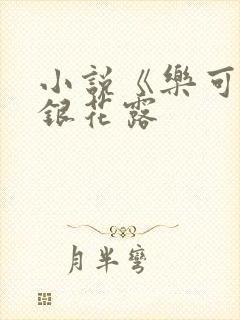 小說《樂可
銀花露
月半彎